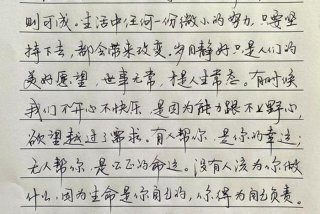 则可成。生活中任何一份微小的努力，只要坚
持下去，都会带来改变。岁月静好只是人们的
美好愿望，世事无常，才是人生常态。有时候
我们不开心不快乐，是因为能力跟不上野心，
欲望越过了需求。有人帮你，是你的幸运；
无人帮你，是公正的命运。没有人该为你做
什么，因为生命是你自己的，你得为自己负责。